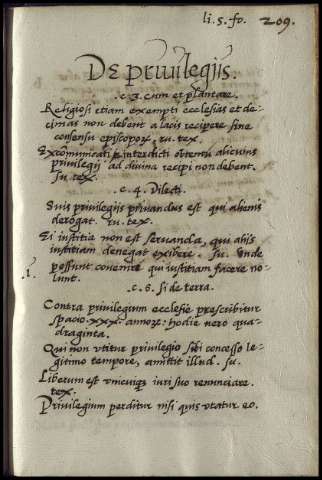 li. 5. fo. 209.
De priuilegijs.
.c. 3. cum et plantare.
Religiosi etiam exempti ecclesias et de-
cimas non debent a laicis recipere sine
consensu episcoporum. in. tex.
Excommunicati et interdicti obtentu alicuius
priuilegij ad diuina recipi non debent.
in. tex.
.c. 4. Dilecti.
Suis priuilegijs priuandus est qui alienis
derogat. in. tex.
Ei iustitia non est seruanda, qui alijs
iustitiam denegat exibere. su. Vnde
possunt conueniri qui iustitiam facere no-
lunt.
.c. 6. si de terra.
Contra priuilegium ecclesie prescribitur
spacio .xxx. annorum: hodie uero qua-
draginta.
Qui non vtitur priuilegio sibi concesso le-
gitimo tempore, amittit illud. su.
Liberum est vnicuique iuri suo renunciare.
tex.
Priuilegium perditur nisi quis vtatur eo.